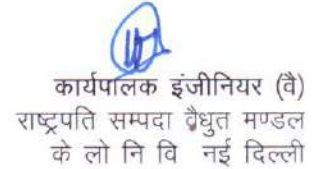 कार्यपालक इंजीनियर (वै)
राष्ट्रपति सम्पदा वैधुत मण्डल
के लो नि वि नई दिल्ली